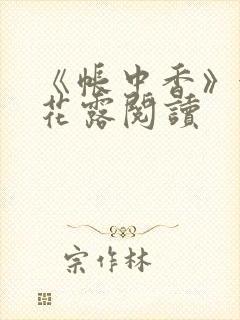 《帳中香》
花露閱讀
宗作林